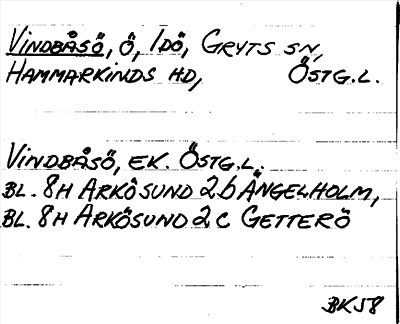 VINDBÅSÖ, Ö, IDÖ, GRYTS SN,
HAMMARKINDS HD, ÖSTG.L.
VINDBÅSÖ, EK. ÖSTG.L.
BL. 8H ARKÖSUND 2b ÄNGELHOLM,
BL. 8H ARKÖSUND 2c GETTERÖ
BK58